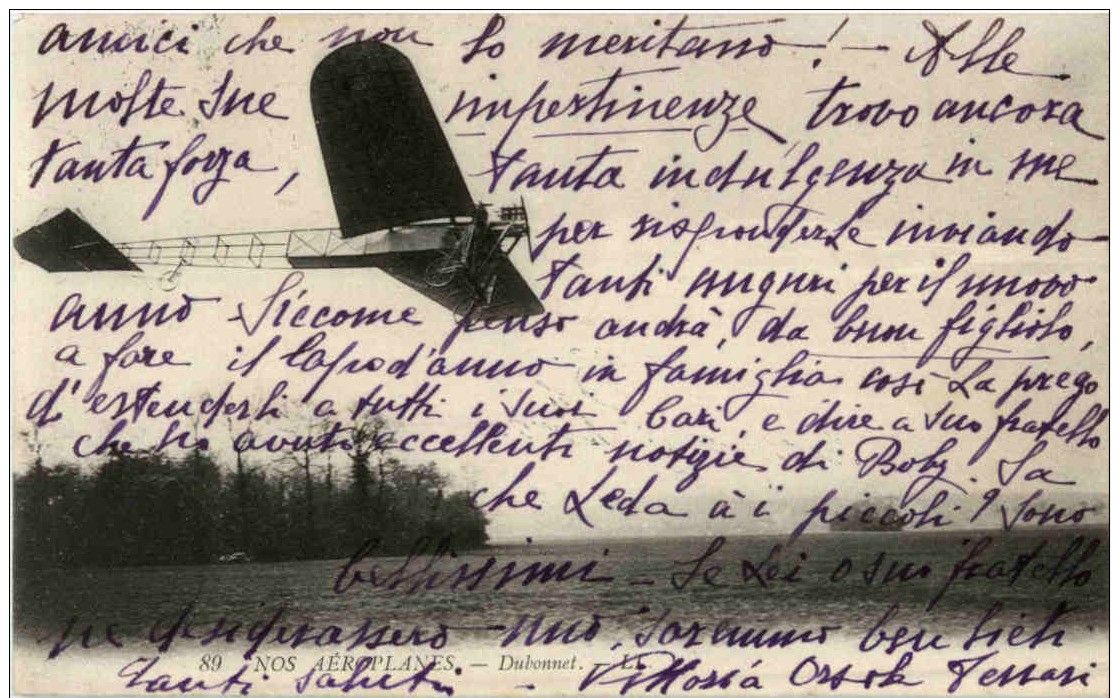 amici che non lo meritano! - Alle
molte Sue impertinenze trovo ancora
tanta forza, tanta indulgenza in me
per risponderle inviando
tanti auguri per il nuovo
anno. Siccome penso andrà, da buon figliolo,
a fare il Capo d'anno in famiglia così La prego
d'estenderli a tutti i Suoi Cari, e dire a Suo fratello
che ho avuto eccellenti notizie di Boby. Sa
che Leda à i piccoli? Sono
bellissimi - Se Lei o suo fratello
ne desiderassero uno, saremmo ben lieti
89 NOS AÉROPLANES. - Dubonnet. - LL
Tanti Saluti - Ferrari